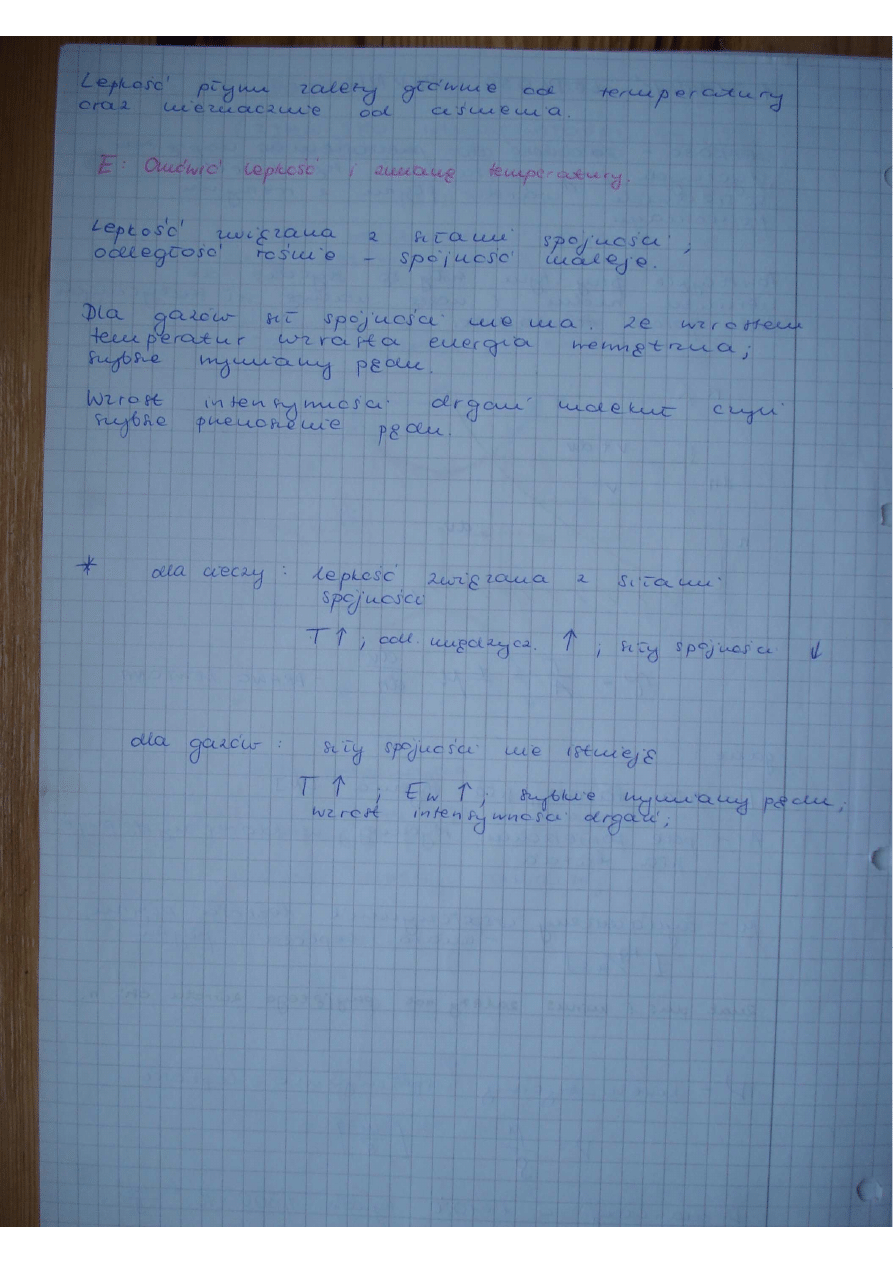 Lepkość płynu zależy głównie od temperatury
oraz nieznacznie od ciśnienia.
E: Omówić lepkość i zmianę temperatury.
Lepkość związana z siłami spójności;
odległość rośnie - spójność maleje.
Dla gazów sił spójności nie ma. Ze wzrostem
temperatur wzrasta energia wewnętrzna;
szybsze wymiany pędu.
Wzrost intensywności drgań molekuł czyli
szybsze przenoszenie pędu.
* dla cieczy: lepkość związana z siłami
spójności
T↑; odl. międzycz. ↑; siły spójności ↓
dla gazów: siły spójności nie istnieją
T↑; Ew↑; szybkie wymiany pędu;
wzrost intensywności drgań;